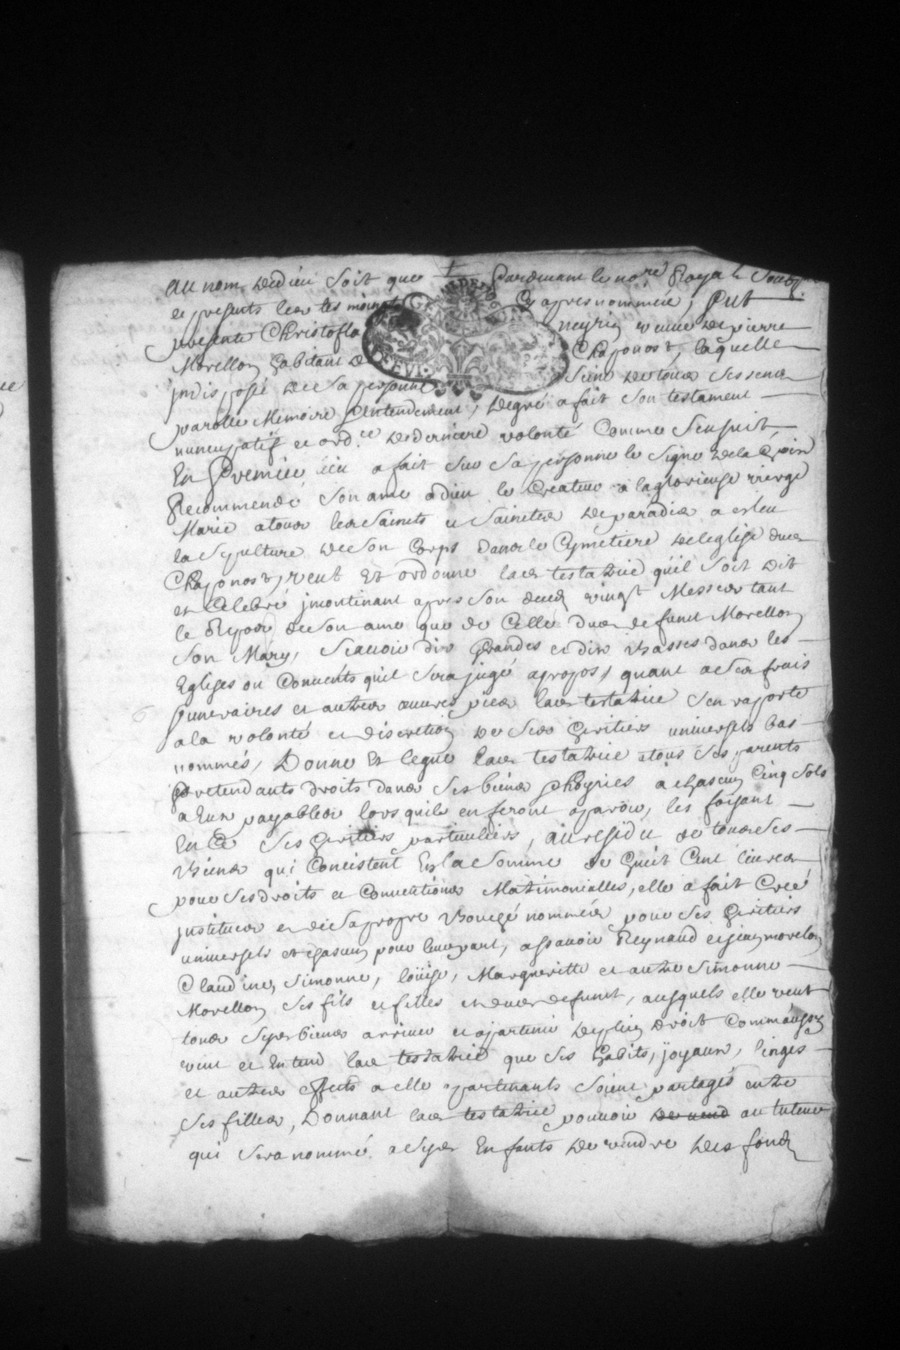 au nom de dieu soit que Pardevant le no.re Royal Soub.
et presents les tesmoings Cy apres nommées, fut
presente Christofla neyrin veuve de pierre
Morellon habitant de Chaponost, laquelle
jndisposé de sa personne seine de tous ses sens
parolle Memoire Entendement, de gré a fait son testament
nuncupatif et ord.ce de derniere volonté Comme s'ensuit
En Premier lieu a fait sur sa personne le signe de la Croix
Recommendé son ame a dieu le Createur a la glorieuse vierge
Marie a tous les Saincts et Sainctes de paradis a esleu
la sepulture de son Corps dans le Cymetiere de l'eglise dud
Chaponost, veut et ordonne lad testatrice qu'il soit dit
et Celebré jmontinant apres son deced vingt Messes tant
le Repos de son ame que de Celle dud defunt Morellon
son Mary, scavoir dix Grandes et dix basses dans les
Eglises ou Convents qu'il sera jugé apropos, quant a ses frais
funeraires et autres œuvres pies lad testatrice s'en raporte
a la volonté et discretion de ses heritiers universels bas
nommés, Donne et legue lad testatrice a tous ses parents
pretendants droits dans ses biens a chascun Cinq sols
a Eux payables lorsquils en feront aparoir, les faisant
En Ce ses heritiers particuliers, au residu de tous ses
biens qui Concistent En la somme de huit Cent livres
pour ses droits et Conventions Matrimonialles, elle a fait Creé
jnstitues et de sa propre bouche nommées pour ses heritiers
universels et chascun pour leur part, assavoir Reynaud et jean morellon
Claudine, Simonne, loüise, Margueritte et autre Simonne
Morellon ses fils et filles et dud defunt, ausquels elle veut
tous sesd biens arriver et apartenir de plein droit
veut et Entend lad testatrice que ses habits, joyaux, linges
et autres effects a elle apartenants soient partagés entre
ses filles, Donnant lad testatrice pouvoir de vend au tuteur
qui sera nommé a sesd Enfants de vendre des fonds